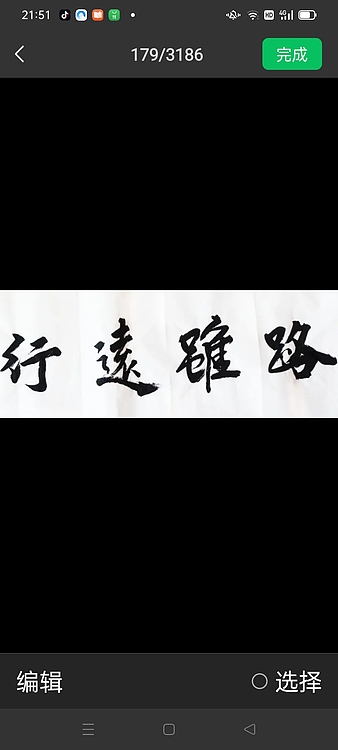 21:51
179/3186
完成
路雖遠行
编辑
选择